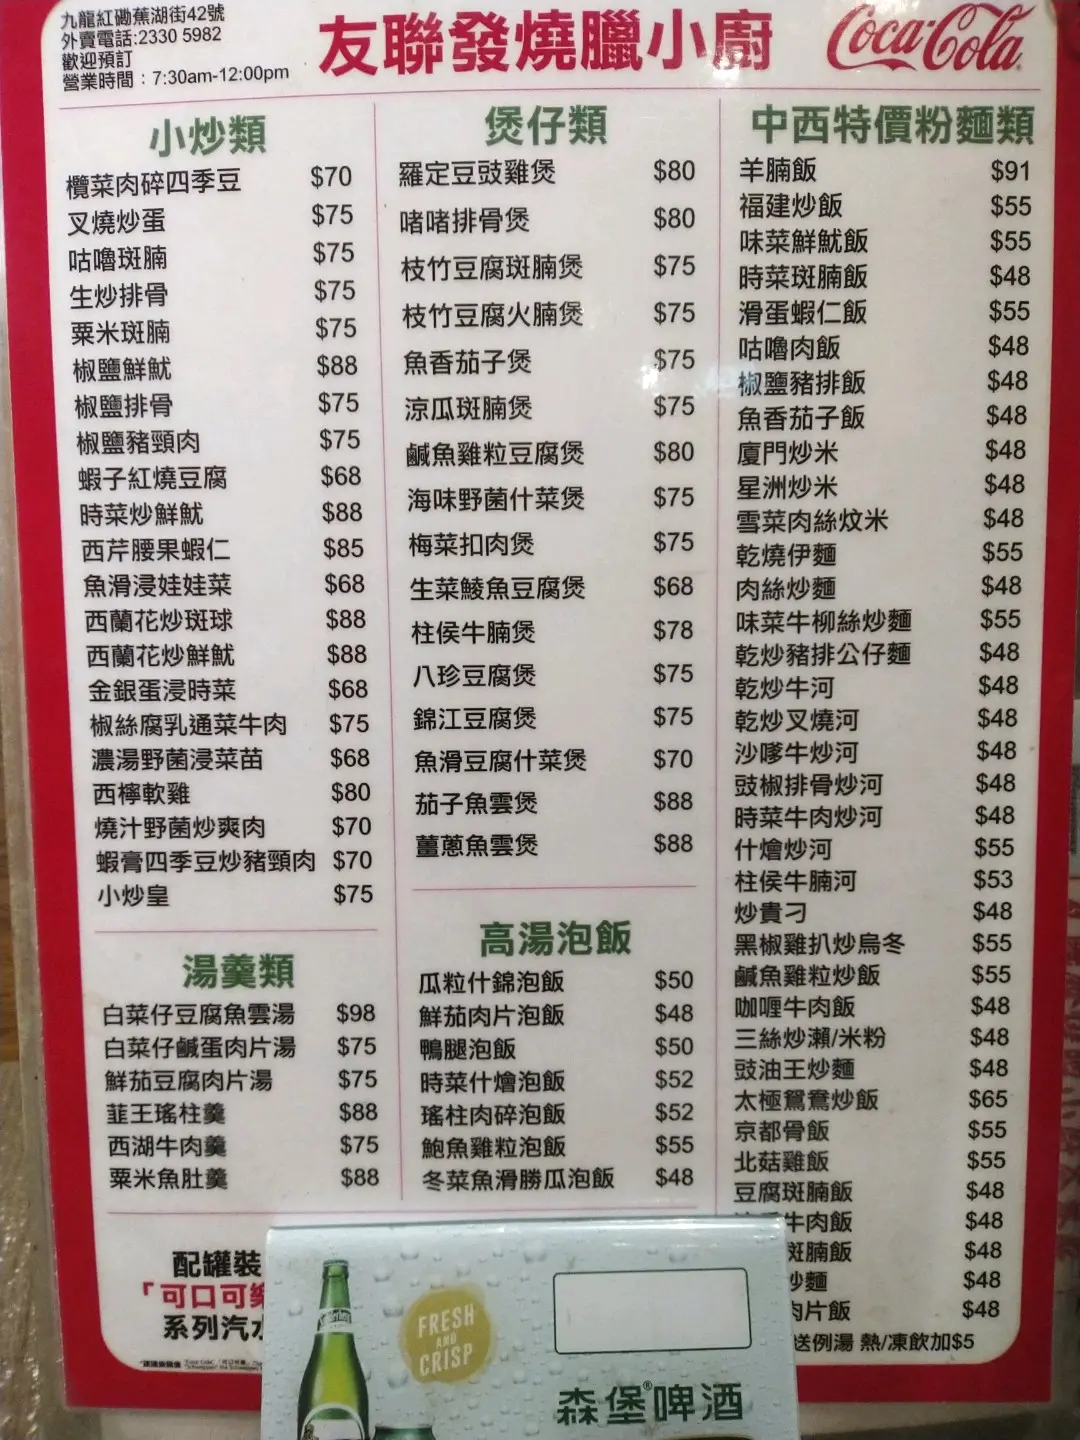 九龍紅磡蕪湖街42號
外賣電話:2330 5982
歡迎預訂
營業時間：7:30am-12:00pm
友聯發燒臘小廚
Coca-Cola
小炒類
欖菜肉碎四季豆 $70
叉燒炒蛋 $75
咕嚕斑腩 $75
生炒排骨 $75
粟米斑腩 $75
椒鹽鮮魷 $88
椒鹽排骨 $75
椒鹽豬頸肉 $75
蝦子紅燒豆腐 $68
時菜炒鮮魷 $88
西芹腰果蝦仁 $85
魚滑浸娃娃菜 $68
西蘭花炒斑球 $88
西蘭花炒鮮魷 $88
金銀蛋浸時菜 $68
椒絲腐乳通菜牛肉 $75
濃湯野菌浸菜苗 $68
西檸軟雞 $80
燒汁野菌炒爽肉 $70
蝦膏四季豆炒豬頸肉 $70
小炒皇 $75
湯羹類
白菜仔豆腐魚雲湯 $98
白菜仔鹹蛋肉片湯 $75
鮮茄豆腐肉片湯 $75
韮王瑤柱羹 $88
西湖牛肉羹 $75
粟米魚肚羹 $88
配罐裝
「可口可樂
系列汽水
煲仔類
羅定豆豉雞煲 $80
啫啫排骨煲 $80
枝竹豆腐斑腩煲 $75
枝竹豆腐火腩煲 $75
魚香茄子煲 $75
涼瓜斑腩煲 $75
鹹魚雞粒豆腐煲 $80
海味野菌什菜煲 $75
梅菜扣肉煲 $75
生菜鯪魚豆腐煲 $68
柱侯牛腩煲 $78
八珍豆腐煲 $75
錦江豆腐煲 $75
魚滑豆腐什菜煲 $70
茄子魚雲煲 $88
薑蔥魚雲煲 $88
高湯泡飯
瓜粒什錦泡飯 $50
鮮茄肉片泡飯 $48
鴨腿泡飯 $50
時菜什燴泡飯 $52
瑤柱肉碎泡飯 $52
鮑魚雞粒泡飯 $55
冬菜魚滑勝瓜泡飯 $48
中西特價粉麵類
羊腩飯 $91
福建炒飯 $55
味菜鮮魷飯 $55
時菜斑腩飯 $48
滑蛋蝦仁飯 $55
咕嚕肉飯 $48
椒鹽豬排飯 $48
魚香茄子飯 $48
廈門炒米 $48
星洲炒米 $48
雪菜肉絲炆米 $48
乾燒伊麵 $55
肉絲炒麵 $48
味菜牛柳絲炒麵 $55
乾炒豬排公仔麵 $48
乾炒牛河 $48
乾炒叉燒河 $48
沙嗲牛炒河 $48
豉椒排骨炒河 $48
時菜牛肉炒河 $48
什燴炒河 $55
柱侯牛腩河 $53
炒貴刁 $48
黑椒雞扒炒烏冬 $55
鹹魚雞粒炒飯 $55
咖喱牛肉飯 $48
三絲炒瀨/米粉 $48
豉油王炒麵 $48
太極鴛鴦炒飯 $65
京都骨飯 $55
北菇雞飯 $55
豆腐斑腩飯 $48
牛肉飯 $48
斑腩飯 $48
炒麵 $48
肉片飯 $48
送例湯 熱/凍飲加$5
FRESH
AND
CRISP
森堡®啤酒